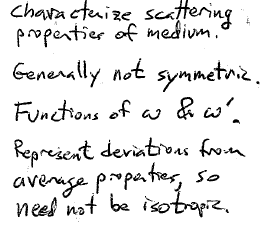 Characterize scattering
properties of medium.
Generally not symmetric.
Functions of ω & ω'.
Represent deviations from
average properties, so
need not be isotropic.